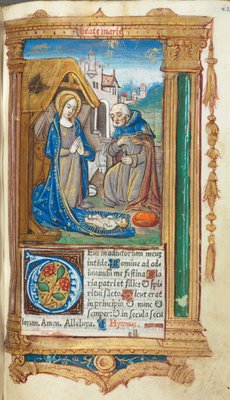 beate marie
DEus in adiutorium meū
intēde. Domine ad ad
iuuandum me festina. Gloria
patri et filio: Et spi
ritui sācto. Sicut erat
in principio Et nunc Et
semper: Et in secula secu
lorum. Amen. Alleluya. Hymnus.